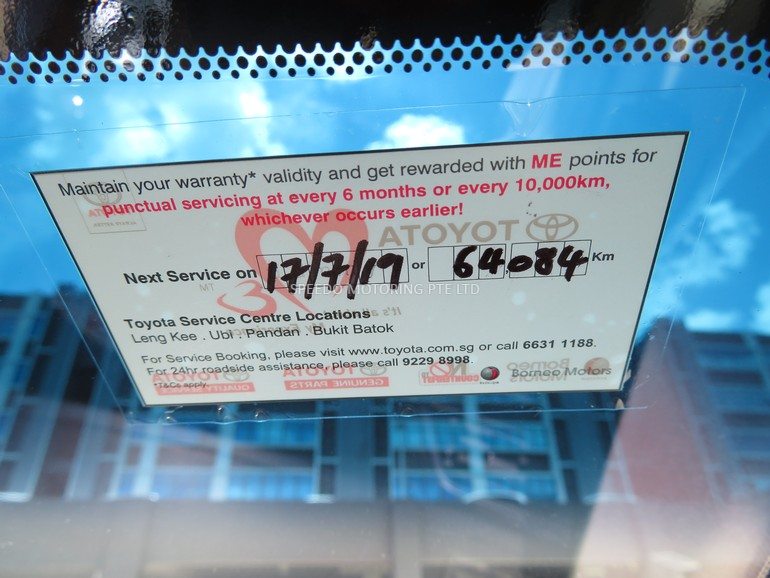 Maintain your warranty* validity and get rewarded with ME points for
punctual servicing at every 6 months or every 10,000km,
whichever occurs earlier!
TOYOTA
Next Service on 17/7/19 or 64084 Km
MT
SPEEDO MOTORING PTE LTD
Toyota Service Centre Locations
Leng Kee . Ubi . Pandan . Bukit Batok
For Service Booking, please visit www.toyota.com.sg or call 6631 1188.
For 24hr roadside assistance, please call 9229 8998.
*T&Cs apply
TOYOTA
GENUINE PARTS
Borneo Motors
Borneo Motors